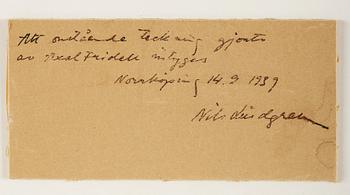 Att omstående teckning gjorts
av Axel Fridell intygas
Norrköping 14.9 1939
Nils Lindgren